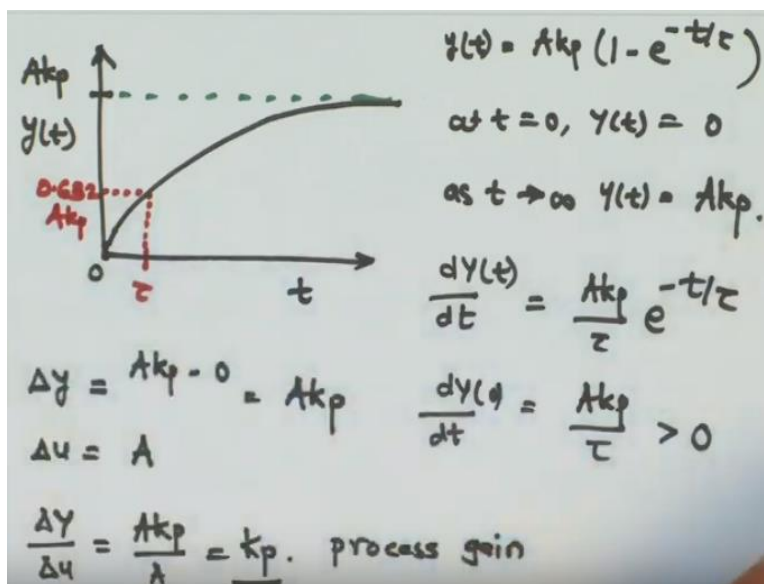 Akp
y(t)
0.632
Akp
0
τ
t
y(t) = Akp (1 - e^-t/τ)
at t = 0, y(t) = 0
as t → ∞ y(t) = Akp.
dy(t)/dt = Akp/τ e^-t/τ
dy(0)/dt = Akp/τ > 0
Δy = Akp - 0 = Akp
Δu = A
Δy/Δu = Akp/A = kp. process gain